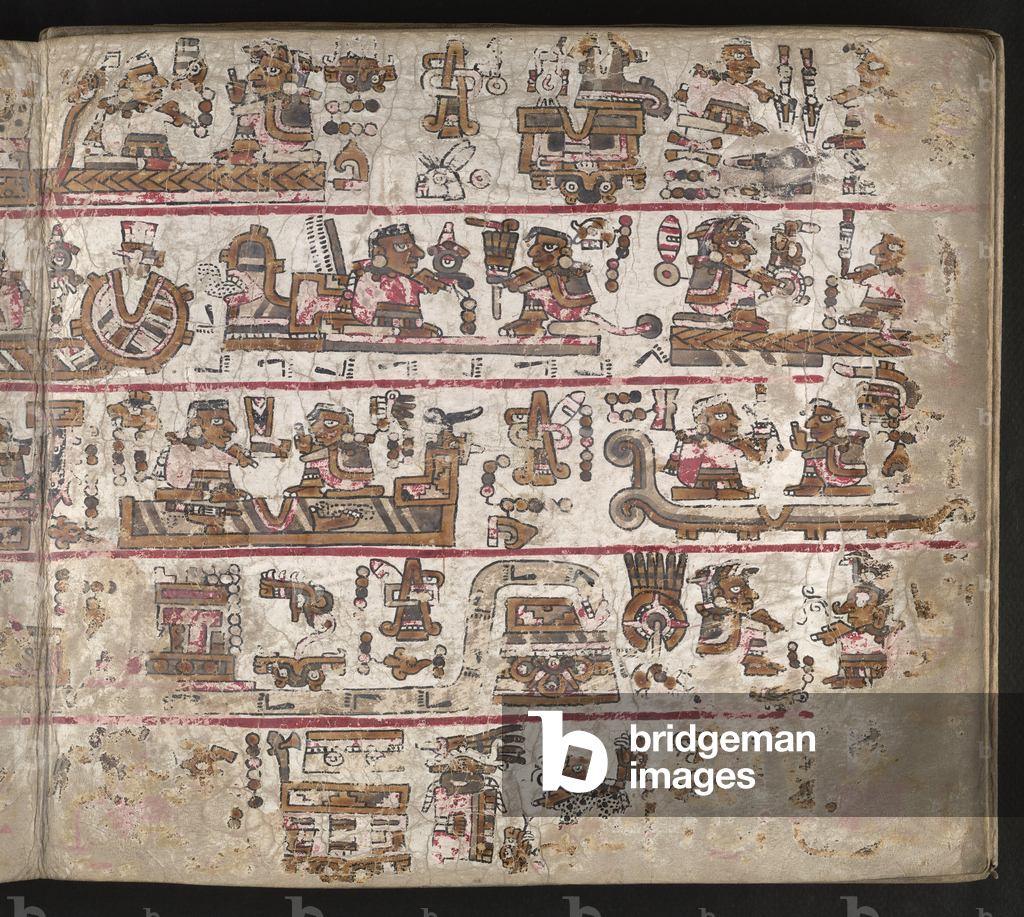 b bridgeman
images